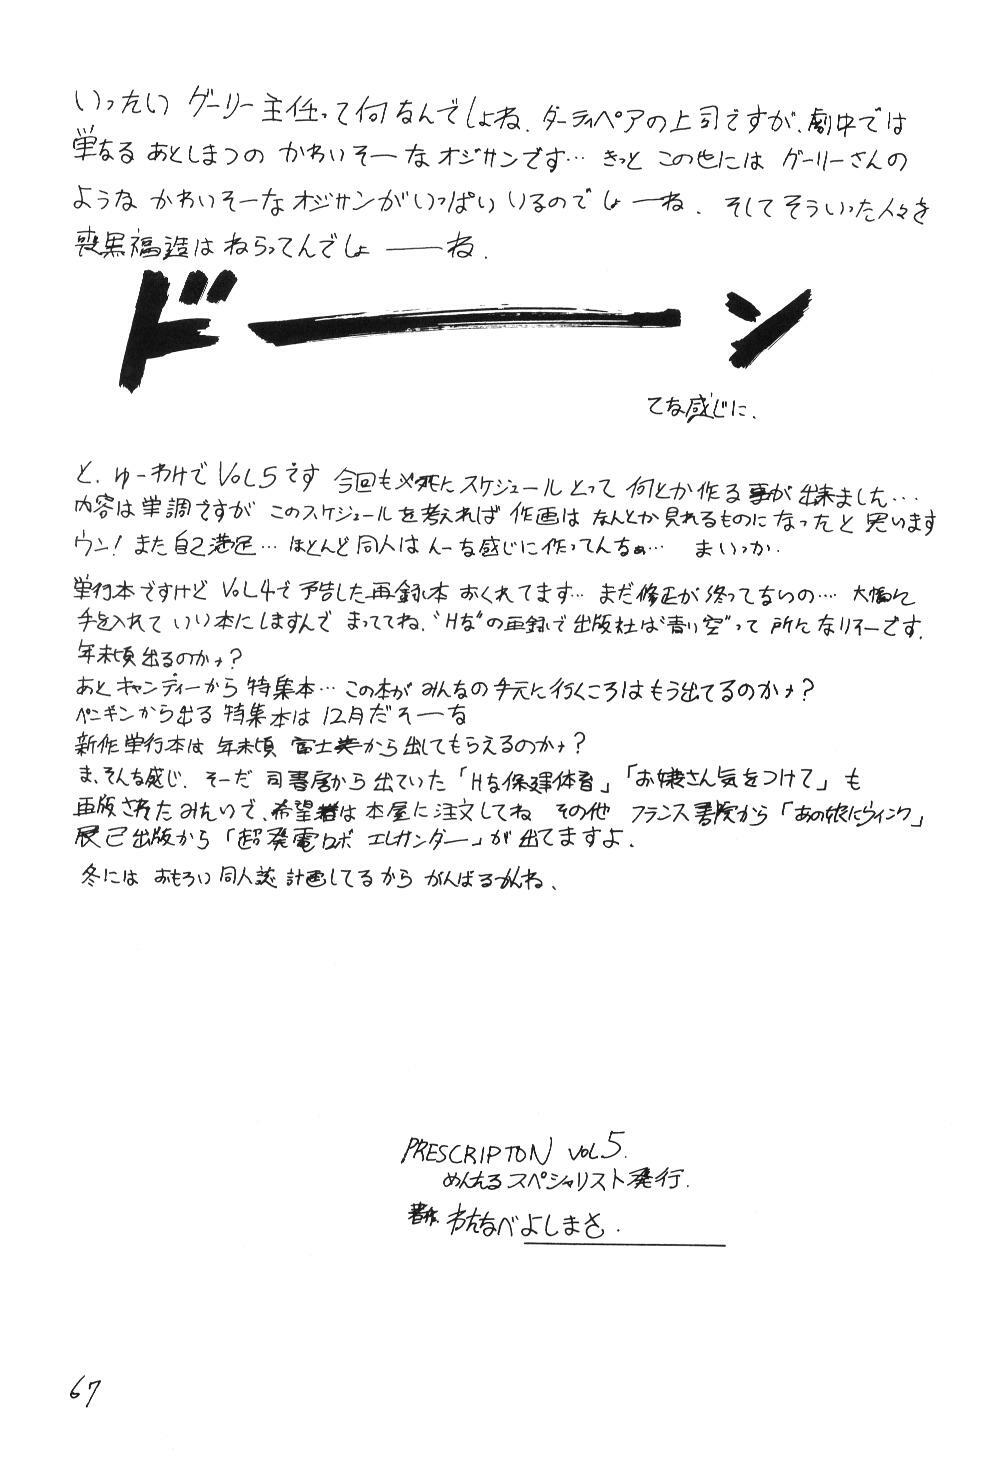 いったい グーリー主任って何なんでしょね、ダーティペアの上司ですが、劇中では
単なる あとしまつの かわいそーなオジサンです… きっと この世には グーリーさんの
ような かわいそーなオジサンがいっぱい いるのでしょーね．そしてそういった人々を
喪黒福造は ねらってんでしょ ――ね．
ドーン
てな感じに．
と、ゆーわけで VOL5です 今回も必死にスケジュールとって 何とか作る事が出来ました…
内容は単調ですが このスケジュールを考えれば 作画は なんとか見れるものになったと思います
ウン！また自己満足… ほとんど同人は んーな感じに作ってんなぁ… まいっか．
単行本ですけど VOL4で予告した再録本 おくれてます… まだ修正が終ってないの… 大幅に
手を入れて いい本にしますんで まっててね．“Hな”の再録で出版社は“青い空”って 所になりそーです．
年末頃出るのかナ？
あと キャンディーから 特集本… この本が みんなの手元に行くころは もう出てるのかナ？
ペンギンから出る 特集本は 12月だそーな
新作単行本は 年末頃 富士美から出してもらえるのかナ？
ま、そんな感じ．そーだ 司書房から出ていた「Hな保健体育」「お嬢さん気をつけて」も
再版されたみたいで、希望者は本屋に注文してね その他 フランス書院から「あの娘にウィンク」
辰己出版から「超発電ロボ エレガンダー」が出てますよ．
冬には おもろい同人誌 計画してるから がんばるかんね、
PRESCRIPTON VOL5.
めんたるスペシャリスト発行．
著作．わたなべよしまさ．
67